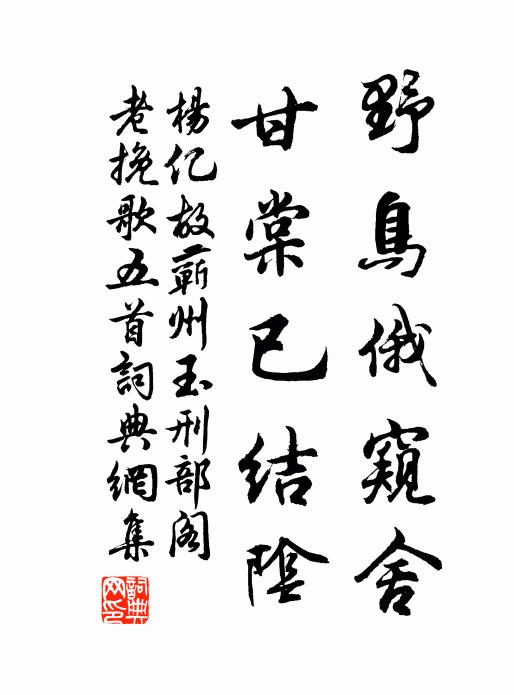 野鳥俄窺舍
甘棠已結陰
楊亿故蘄州玉刑部閣
老挽歌五首詞典網集
詞典网印